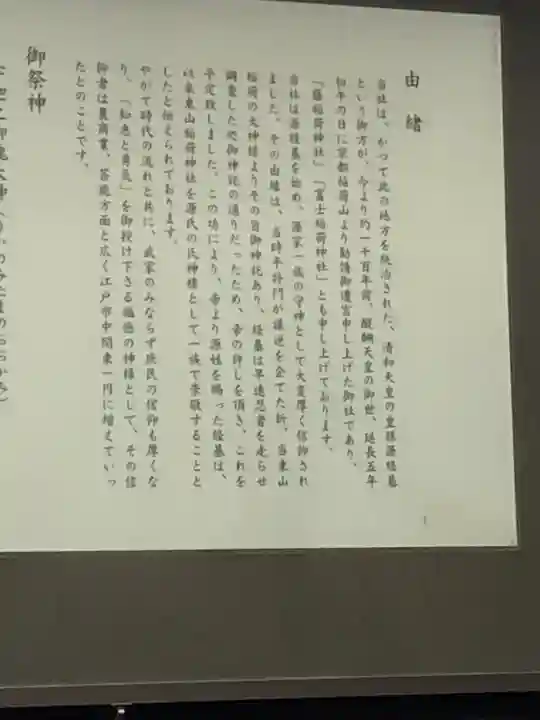 由緒
当社は、かつて此の地方を統治された、清和天皇の皇孫源経基
という御方が、今より約一千百年前、醍醐天皇の御世、延長五年
初午の日に京都稲荷山より勧請御遷宮申し上げた御社であり、
「藤稲荷神社」「富士稲荷神社」とも申し上げております。
当社は源経基を始め、源家一族の守神として大変厚く信仰され
ました。その由緒は、当時平将門が謀逆を企てた折、当東山
稲荷の大神様よりその旨御神託あり、経基は早速忍者を走らせ
調査した処御神託の通りだったため、帝の許しを頂き、これを
平定致しました。この功により、帝より源姓を賜った経基は、
以来東山稲荷神社を源氏の氏神様として一族で崇敬することと
したと伝えられております。
やがて時代の流れと共に、武家のみならず庶民の信仰も厚くな
り、「知恵と勇気」を御授け下さる福徳の神様として、その信
仰者は農商業、芸能方面と広く江戸市中関東一円に増えていっ
たとのことです。
御祭神